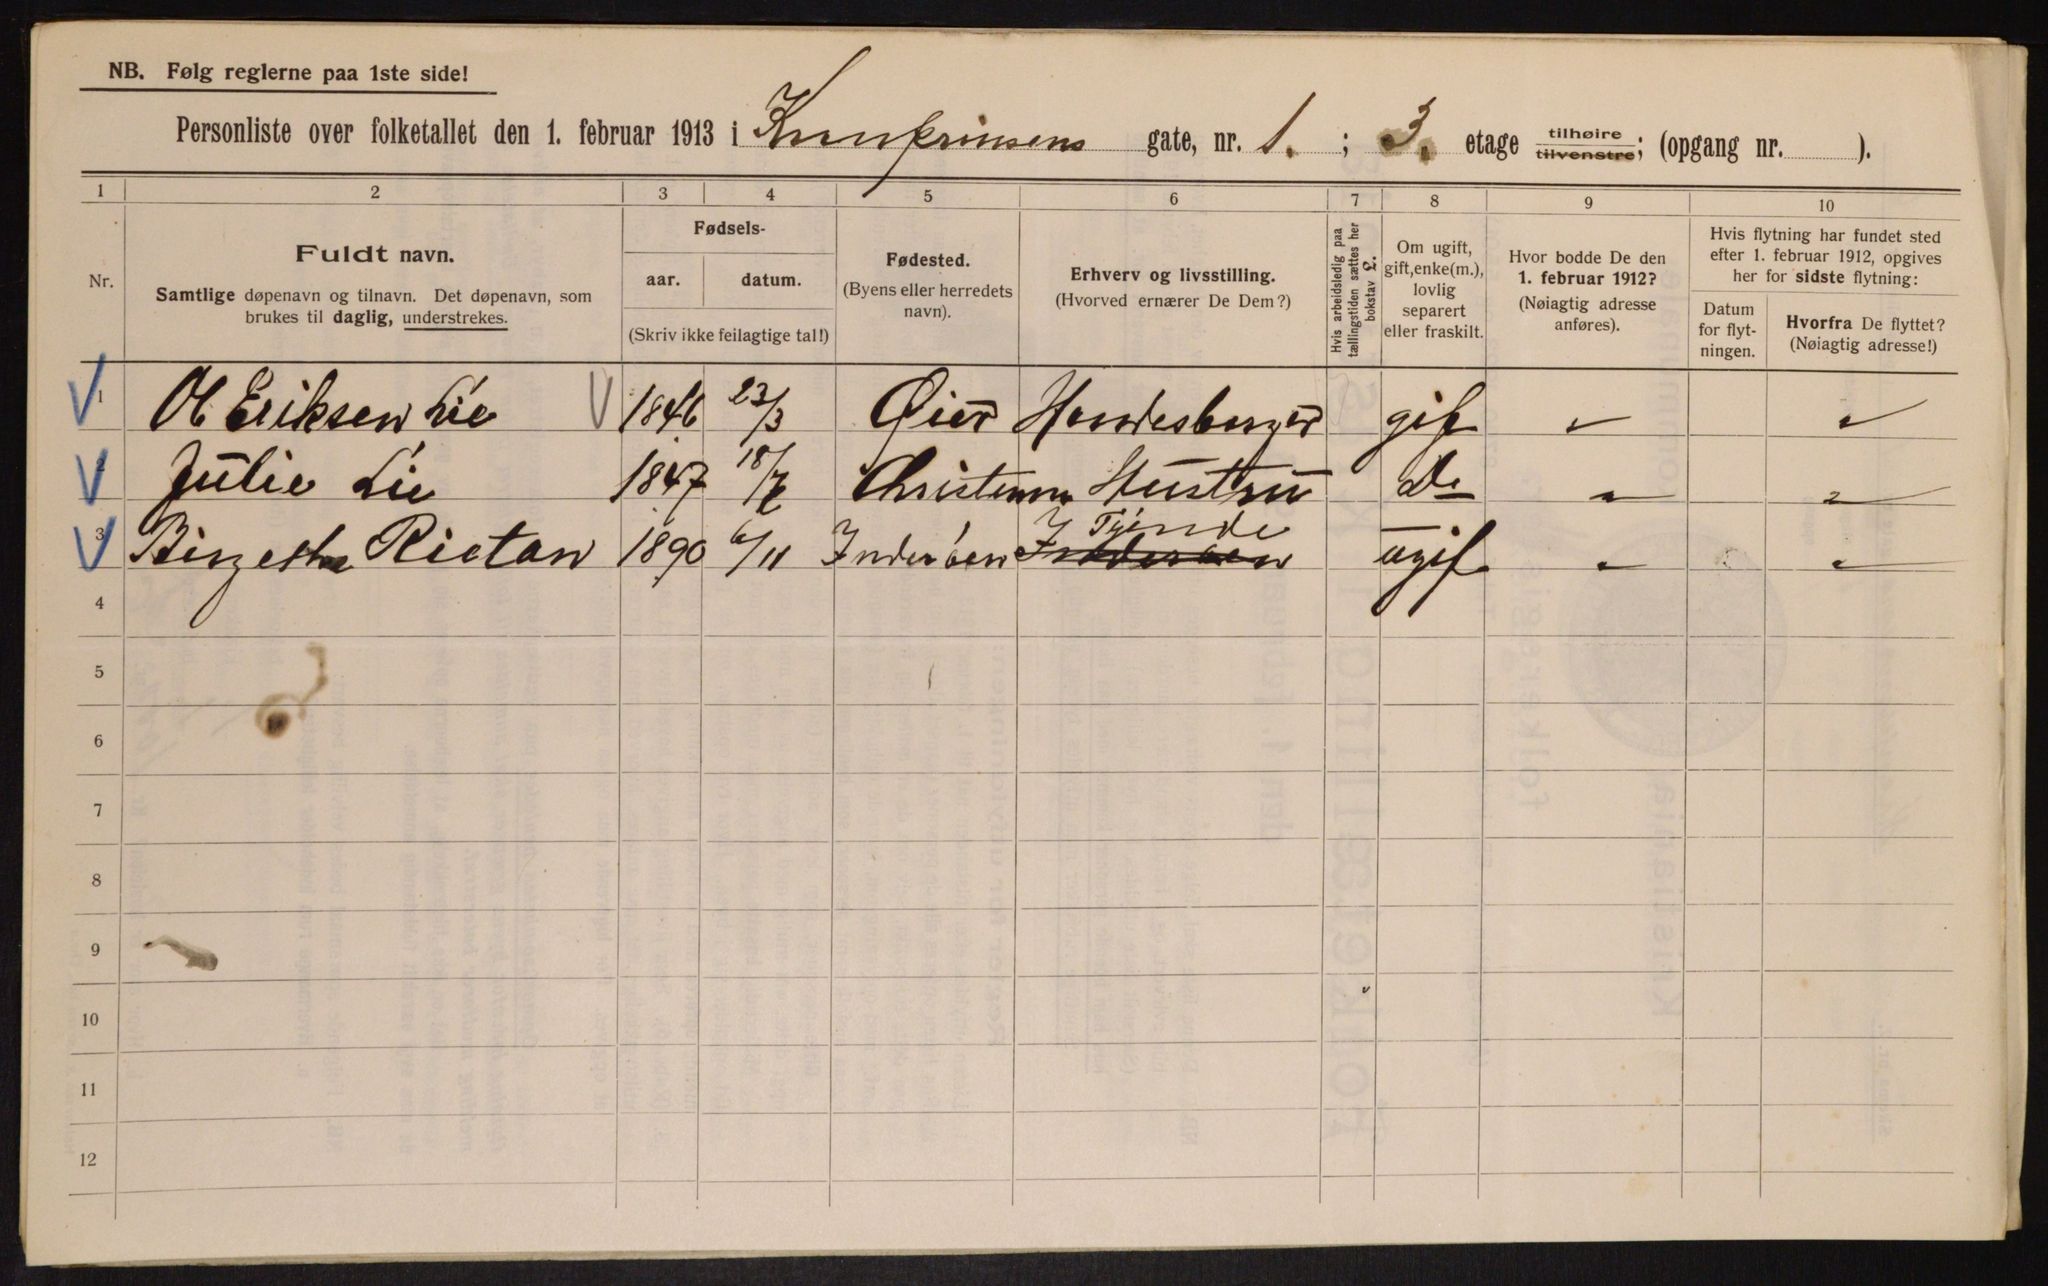 NB. Følg reglerne paa 1ste side!
Personliste over folketallet den 1. februar 1913 i Kronprinsens gate, nr. 1. ; 3. etage tilhøire tilvenstre; (opgang nr. ).
1 2 3 4 5 6 7 8 9 10
Nr.
Fuldt navn.
Samtlige døpenavn og tilnavn. Det døpenavn, som
brukes til daglig, understrekes.
Fødsels-
aar. datum.
(Skriv ikke feilagtige tal!)
Fødested.
(Byens eller herredets
navn).
Erhverv og livsstilling.
(Hvorved ernærer De Dem?)
Hvis arbeidsledig paa
tællingstiden sættes her
bokstav L.
Om ugift,
gift, enke(m.),
lovlig
separert
eller fraskilt.
Hvor bodde De den
1. februar 1912?
(Nøiagtig adresse
anføres).
Hvis flytning har fundet sted
efter 1. februar 1912, opgives
her for sidste flytning:
Datum
for flyt-
ningen.
Hvorfra De flyttet?
(Nøiagtig adresse!)
1 Ol Eriksen Lie 1846 23/3 Øier Handesborger gif "  "
2 Julie Lie 1847 18/7 Hustru Do " "
3 Rietan 1890 6/11 Inderøen Tjende Inderøen ugif " "
4
5
6
7
8
9
10
11
12